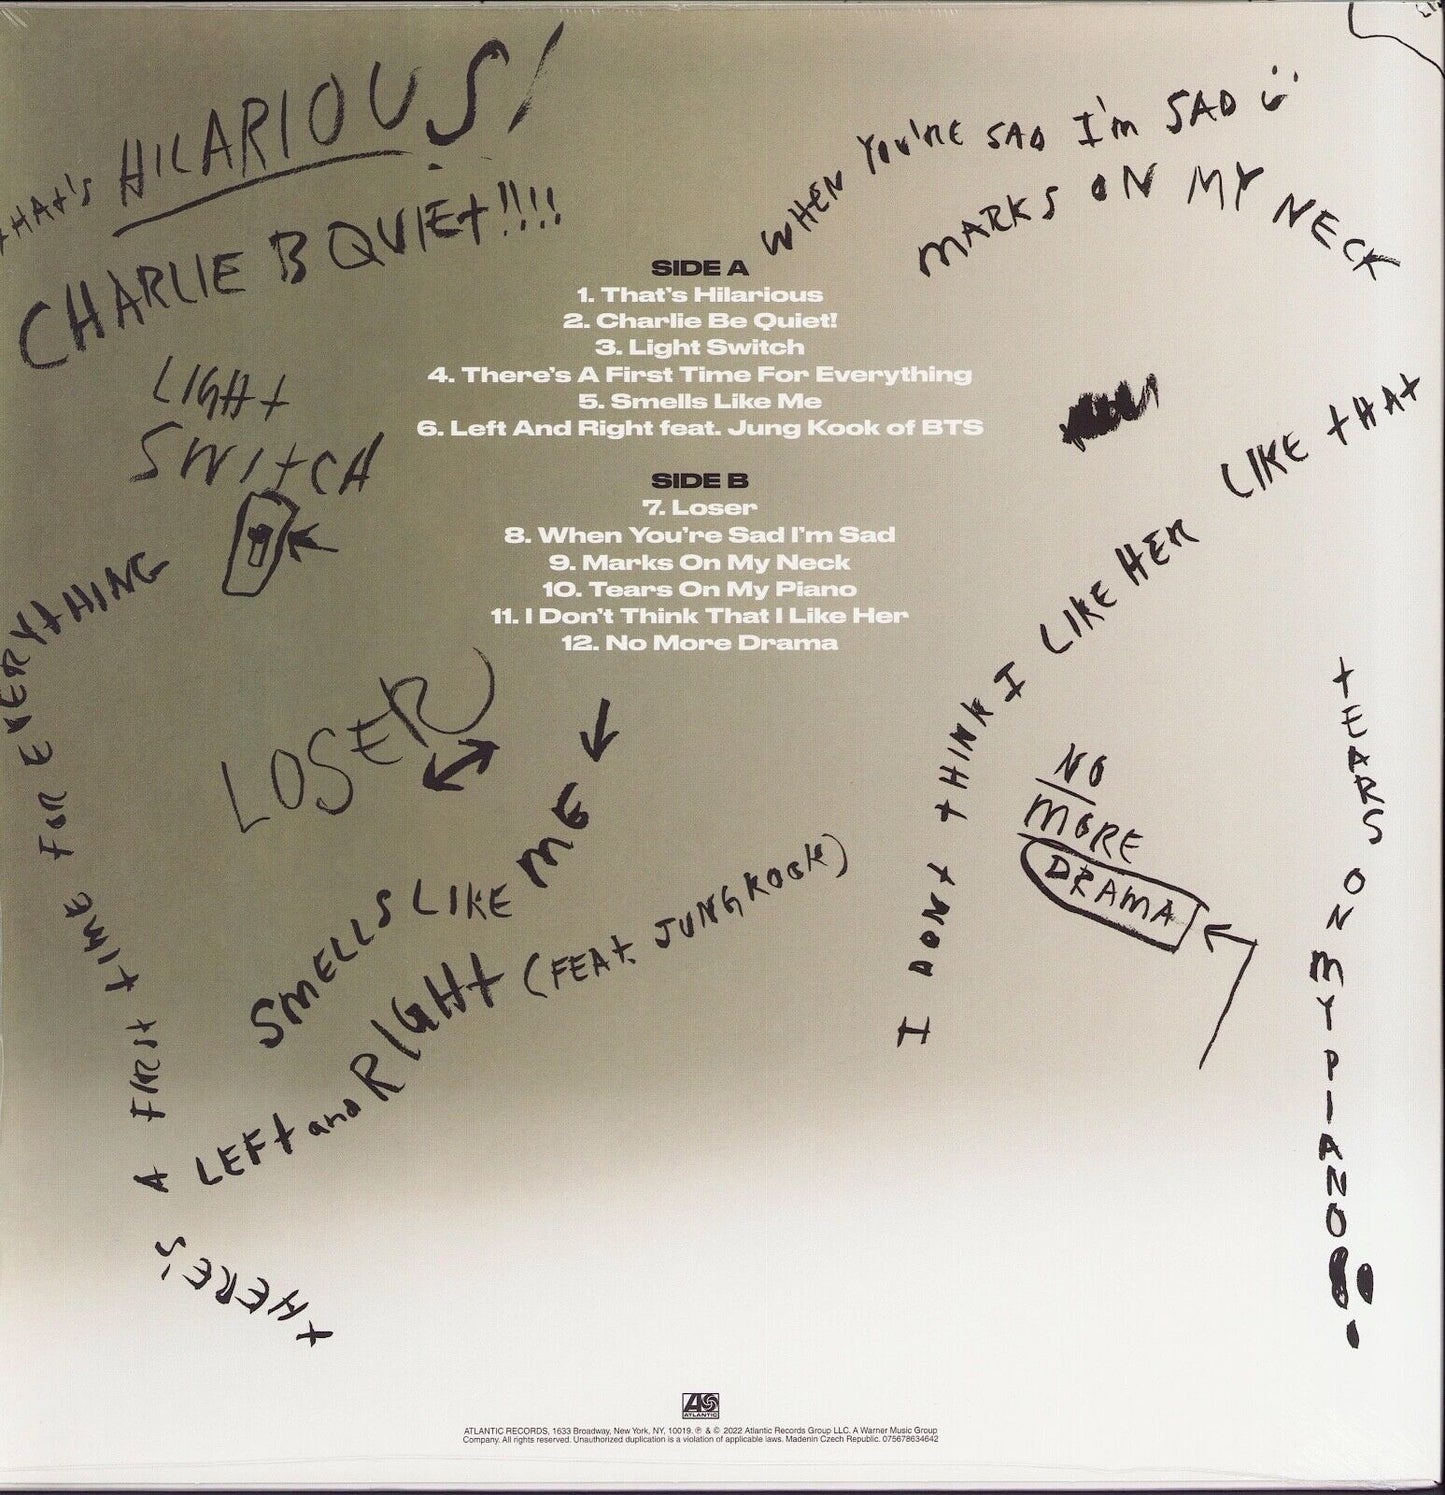 tHAt'S HILARIOUS!
CHARLIE B QUIEt!!!!
LIGHt
SWItCH
WHEN YOU'RE SAD I'm SAD
MARKS ON MY NECK
SIDE A
1. That's Hilarious
2. Charlie Be Quiet!
3. Light Switch
4. There's A First Time For Everything
5. Smells Like Me
6. Left And Right feat. Jung Kook of BTS
SIDE B
7. Loser
8. When You're Sad I'm Sad
9. Marks On My Neck
10. Tears On My Piano
11. I Don't Think That I Like Her
12. No More Drama
tHERE'S A FIRSt tIME FOR EVERYtHING
LOSER
SMELLS LIKE ME
LEFt and RIGHt (FEAt. JUNGKOOK)
I DONt tHINK I LIKE HER LIKE tHAt
NO
MORE
DRAMA
tEARS ON MY PIANO
ATLANTIC
ATLANTIC RECORDS, 1633 Broadway, New York, NY, 10019. ℗ & © 2022 Atlantic Records Group LLC. A Warner Music Group
Company. All rights reserved. Unauthorized duplication is a violation of applicable laws. Madenin Czech Republic. 075678634642